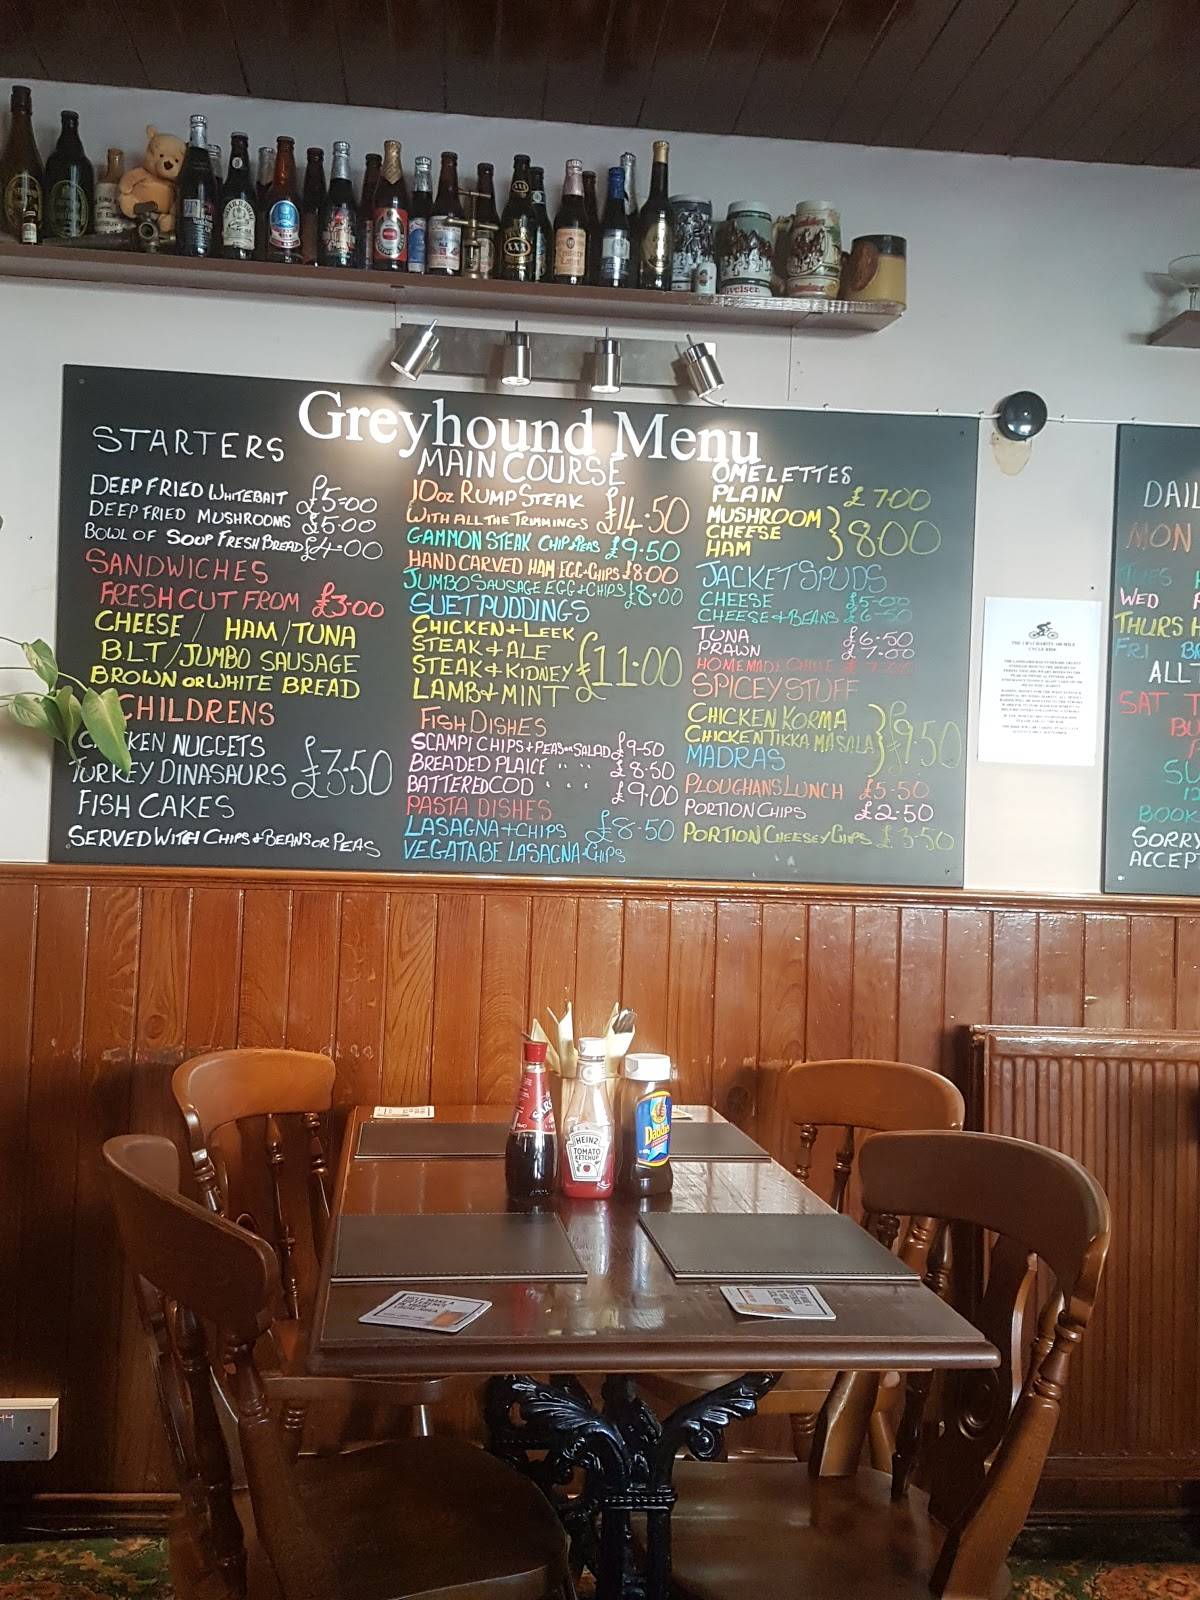 Greyhound Menu
STARTERS
DEEP FRIED WHITEBAIT £5=00
DEEP FRIED MUSHROOMS £5.00
BOWL OF SOUP FRESH BREAD £4.00
SANDWICHES
FRESH CUT FROM £3:00
CHEESE / HAM / TUNA
B.L.T / JUMBO SAUSAGE
BROWN OR WHITE BREAD
CHILDRENS
CHICKEN NUGGETS
TURKEY DINASAURS £3.50
FISH CAKES
SERVED WITH CHIPS + BEANS OR PEAS
MAIN COURSE
10oz RUMP STEAK
WITH ALL THE TRIMMINGS £14.50
GAMMON STEAK CHIPS + PEAS £9.50
HAND CARVED HAM EGG + CHIPS £8.00
JUMBO SAUSAGE EGG + CHIPS £8.00
SUET PUDDINGS
CHICKEN + LEEK
STEAK + ALE
STEAK & KIDNEY £11:00
LAMB + MINT
FISH DISHES
SCAMPI CHIPS + PEAS OR SALAD £9-50
BREADED PLAICE " " £8.50
BATTERED COD " " " £9.00
PASTA DISHES
LASAGNA + CHIPS £8.50
VEGATABE LASAGNA + CHIPS
OMELETTES
PLAIN £7.00
MUSHROOM
CHEESE } 8.00
HAM
JACKET SPUDS
CHEESE £5-00
CHEESE + BEANS £6-50
TUNA £6.50
PRAWN £7.00
HOMEMADE CHILLE £7.00
SPICEY STUFF
CHICKEN KORMA
CHICKEN TIKKA MASALA } £9.50
MADRAS
PLOUGHANS LUNCH £5-50
PORTION CHIPS £2.50
PORTION CHEESEY CHIPS £3.50
DAIL
MON
WED
THURS H
FRI
ALL
SAT
BOOK
SORRY
ACCEPT
CYCLE RIDE
XXX
HEINZ
TOMATO
KETCHUP
Daddies
HELP MAKE A
DIFFERENCE